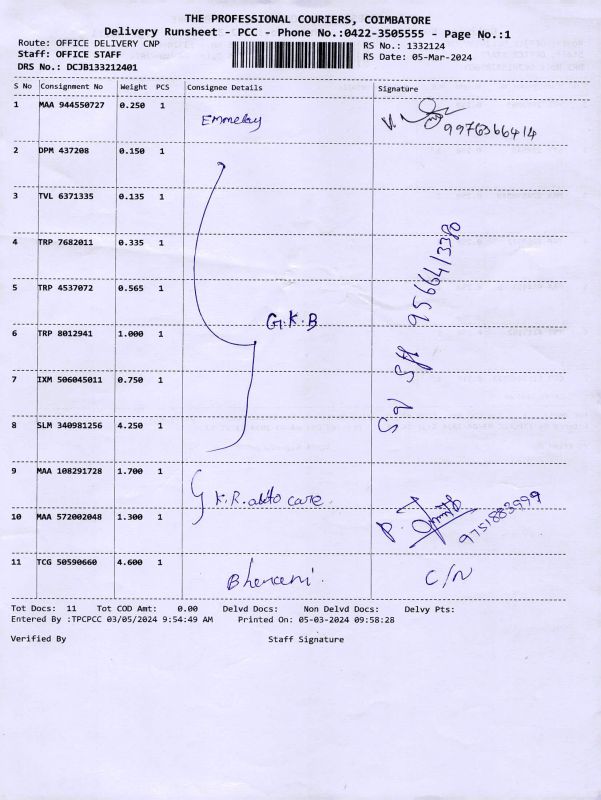 THE PROFESSIONAL COURIERS, COIMBATORE
Delivery Runsheet - PCC - Phone No.:0422-3505555 - Page No.:1
Route: OFFICE DELIVERY CNP
RS No.: 1332124
Staff: OFFICE STAFF
RS Date: 05-Mar-2024
DRS No.: DCJB133212401
S No Consignment No Weight PCS Consignee Details Signature
1 MAA 944550727 0.250 1 9976366414
2 DPM 437208 0.150 1
3 TVL 6371335 0.135 1
4 TRP 7682011 0.335 1
5 TRP 4537072 0.565 1 G.K.B
6 TRP 8012941 1.000 1
7 IXM 506045011 0.750 1
8 SLM 340981256 4.250 1
9 MAA 108291728 1.700 1 K.R. auto care.
10 MAA 572002048 1.300 1 P. 9751883999
11 TCG 50590660 4.600 1 C/N
Tot Docs: 11 Tot COD Amt: 0.00 Delvd Docs: Non Delvd Docs: Delvy Pts:
Entered By :TPCPCC 03/05/2024 9:54:49 AM Printed On: 05-03-2024 09:58:28
Verified By Staff Signature